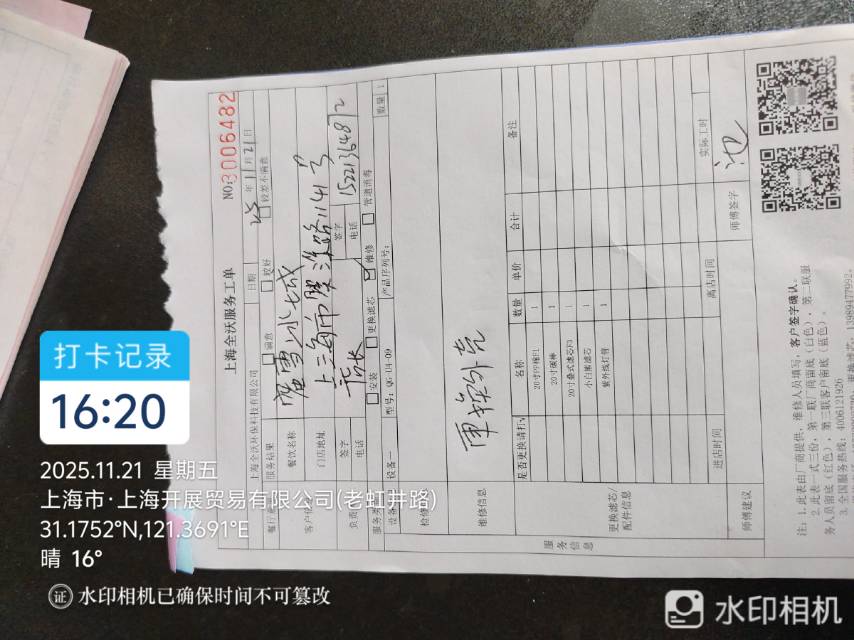 上海全沃服务工单
NO:3006482
上海全沃环保科技有限公司
日期 25年11月21日
服务结果 满意 较好 较差不满意
餐饮名称 唐雪冰城
门店地址
签字
电话 15221364872
安装 更换滤芯 维修 管道消毒
设备一 型号: QG-U4-09 产品序列号: 数量 1
维修信息 更换外壳
是否更换请打√ 名称 数量 单价 合计 备注
20寸PP棉P1 1
20寸碳棒 1
20寸叠式滤芯P3 1
小白鲸滤芯 1
紫外线灯管 1
更换滤芯/配件信息
服务信息
进店时间 离店时间 实际工时
师傅建议 师傅签字
注: 1. 此表由厂商提供, 维修人员填写, 客户签字确认。
2. 此表一式三份, 第一联厂商留底(白色), 第二联服
务人员留底(红色), 第三联客户留底(蓝色)。
3. 全国服务热线: 4006121926
13989477992。
打卡记录
16:20
2025.11.21 星期五
上海市·上海开展贸易有限公司(老虹井路)
31.1752°N,121.3691°E
晴 16°
证 水印相机已确保时间不可篡改
水印相机